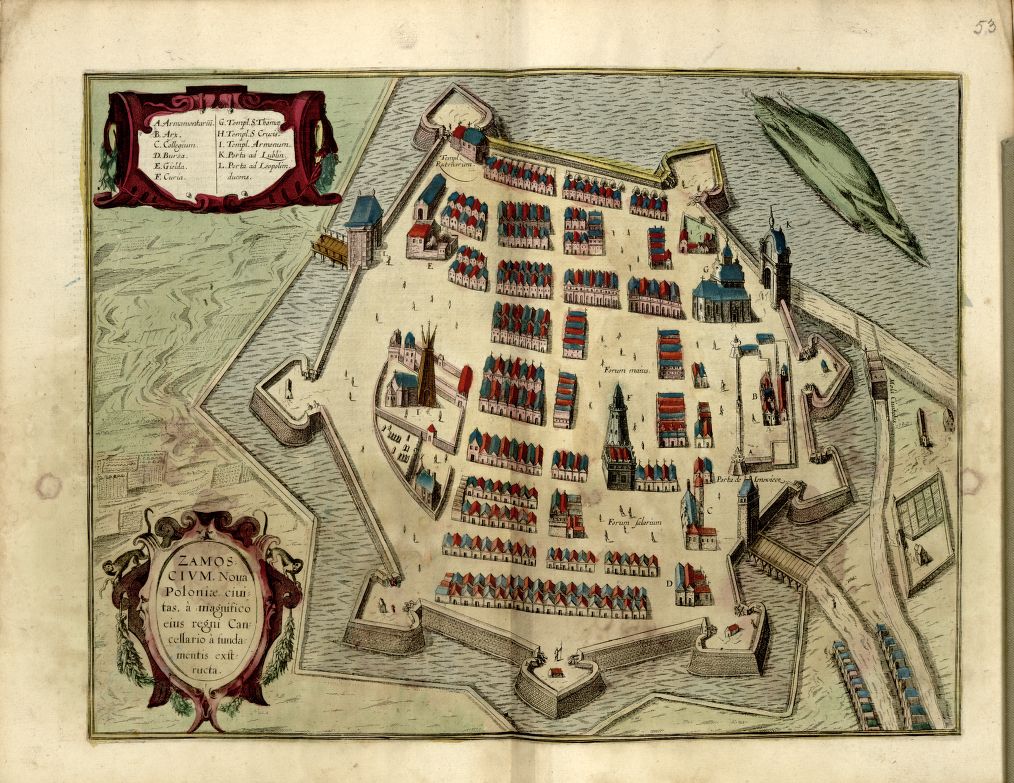 53
A. Armamentariũ.
B. Arx.
C. Collegium.
D. Bursa.
E. Gielda.
F. Curia.
G. Templ. S. Thomæ
H. Templ. S. Crucis.
I. Templ. Armenum.
K. Porta ad Lublin.
L. Porta ad Leopolim
ducens.
Templ.
K
E
G
Forum maius.
F
B
C
Forum salarium
D
ZAMOS-
CIVM, Noua
Poloniæ ciui-
tas, à magnifico
eius regni Can-
cellario à funda-
mentis exst-
ructa.